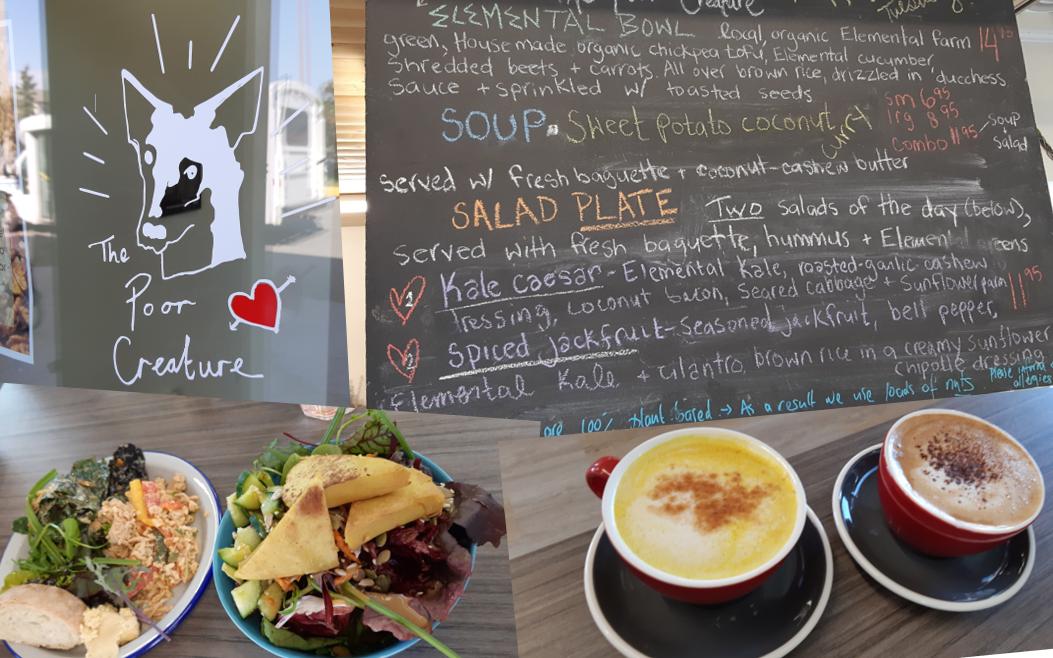 The
Poor
Creature
Creature
Tuesday
ELEMENTAL BOWL local, organic Elemental farm 14
green, House made organic chickpea tofu, Elemental cucumber
Shredded beets + carrots. All over brown rice, drizzled in 'ducchess
Sauce + sprinkled w/ toasted seeds
SOUP. Sweet potato coconut curry
sm 6.95
lrg 8.95
Combo 11.95 soup + salad
served w/ fresh baguette + coconut-cashew butter
SALAD PLATE Two salads of the day (below),
served with fresh baguette, hummus + Elemental greens
1 Kale caesar - Elemental Kale, roasted-garlic-cashew
dressing, coconut bacon, Seared cabbage + Sunflower parm 11.95
2 Spiced jackfruit - Seasoned jackfruit, bell pepper,
Elemental Kale + cilantro, brown rice in a creamy sunflower
chipotle dressing
are 100% plant based → As a result we use loads of nuts Please inform
allergies